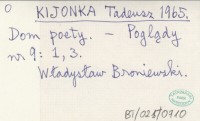 0
KIJONKA Tadeusz 1965.
Dom poety. - Poglądy
nr 9: 1, 3.
Władysław Broniewski.
BJ/028/0910